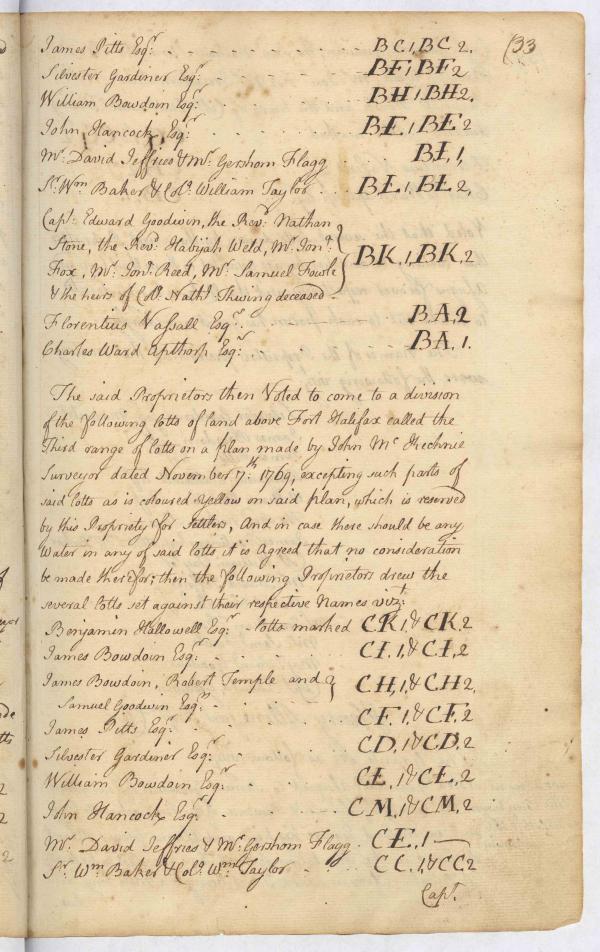 133
James Pitts Esqr. - - - - - - BC1, BC2.
Silvester Gardiner Esqr. - - - BF1, BF2
William Bowdoin Esqr. - - - BH1, BH2.
John Hancock Esqr. - - - BE1, BE2
Mr. David Jeffries & Mr. Gershom Flagg - - BI,1,
Sr. Wm Baker & Colo. William Taylor - - - BL1, BL2,
Capt. Edward Goodwin, the Revd. Nathan
Stone, the Revd. Habijah Weld, Mr. Jont.
Fox, Mr. Jont. Reed, Mr. Samuel Fowle } BK,1, BK,2
& the heirs of Colo. Nathl. Thwing deceased -
Florentius Vassall Esqr. - - - BA,2
Charles Ward Apthorp Esqr. - - - BA,1.
The said Proprietors then Voted to come to a division
of the following lotts of land above Fort Halifax called the
Third range of lotts on a plan made by John Mc Kechnie
Surveyor dated November 7th: 1769, excepting such parts of
said lotts as is coloured yellow on said plan, which is reserved
by this Propriety for Settlers, And in case there should be any
Water in any of said lotts it is Agreed that no consideration
be made therefor; then the following Proprietors drew the
several lotts set against their respective Names vizt:
Benjamin Hallowell Esqr. - lotts marked CK,1,& CK,2
James Bowdoin Esqr. - - - CI,1,& CI,2
James Bowdoin, Robert Temple and } CH,1& CH2,
Samuel Goodwin Esqrs. -
James Pitts Esqr. - - - CF,1,& CF,2
Silvester Gardiner Esqr. - - - CD,1& CD,2
William Bowdoin Esqr. - - - CL,1& CL,2
John Hancock Esqr. - - - CM,1& CM,2
Mr. David Jeffries & Mr. Gershom Flagg - CE,1 —
Sr. Wm Baker & Colo. Wm Taylor - - CC,1,& CC2
Capt.